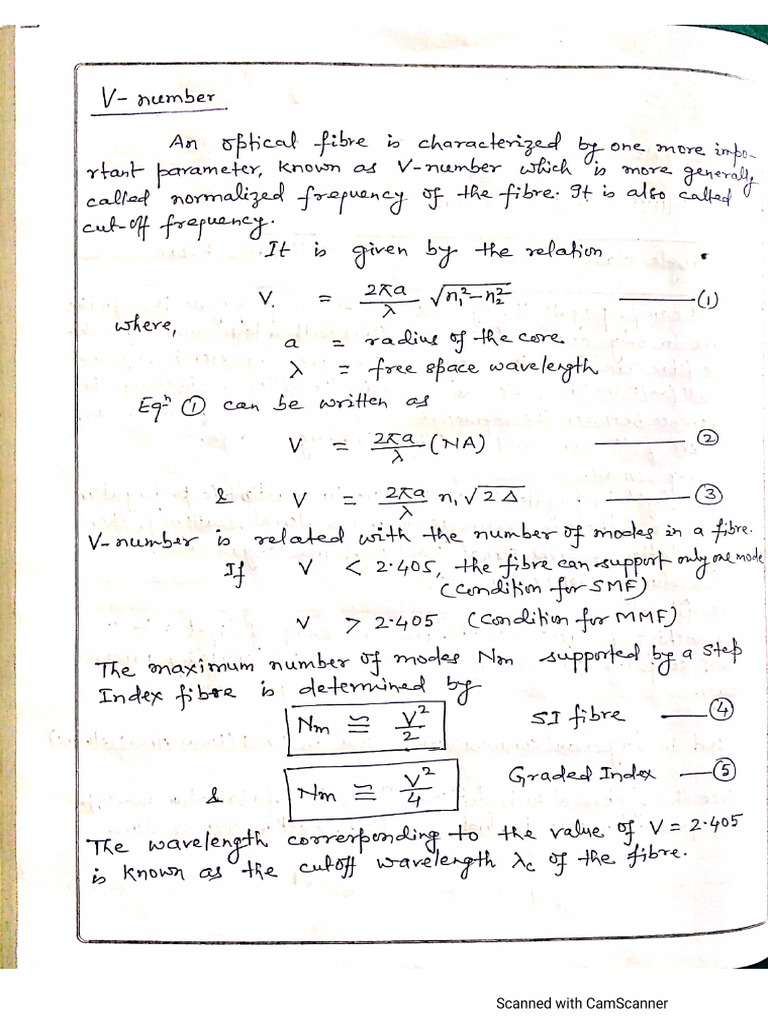 V- number
An optical fibre is characterized by one more impo-
rtant parameter, known as V-number which is more generally
called normalized frequency of the fibre. It is also called
cut-off frequency.
It is given by the relation
V = 2πa/λ √n₁²-n₂² ——— (1)
where,
a = radius of the core
λ = free space wavelength
Eqⁿ ① can be written as
V = 2πa/λ (NA) ——— ②
& V = 2πa/λ n₁√2Δ ——— ③
V-number is related with the number of modes in a fibre.
If V < 2.405, the fibre can support only one mode
(Condition for SMF)
V > 2.405 (Condition for MMF)
The maximum number of modes Nm supported by a step
Index fibre is determined by
Nm ≅ V²/2 SI fibre —— ④
& Nm ≅ V²/4 Graded Index —— ⑤
The wavelength corresponding to the value of V = 2.405
is known as the cutoff wavelength λc of the fibre.
Scanned with CamScanner